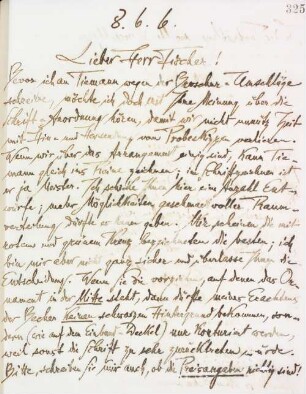 325
8. 6. 6.
Lieber Herr Fischer!
Bevor ich an Tiemann wegen der Umschläge
schreibe, möchte ich doch erst Ihre Meinung über die
Schrift-Anordnung hören, damit wir nicht unnütz Zeit
mit Hin- und Hersendung von Probedrucken verlieren.
Wenn wir über das Arrangement einig sind, kann Tie-
mann gleich ins Reine zeichnen; im Schriftzeichnen ist
er ja Meister. Ich schicke Ihnen hier eine Anzahl Ent-
würfe; mehr Möglichkeiten geschmackvoller Raum-
verteilung dürfte es kaum geben. Mir scheinen die mit
rotem und grünem Kreuz bezeichneten die besten; ich
bin mir aber nicht ganz sicher und überlasse Ihnen die
Entscheidung. Wenn Sie die vorziehen, auf denen das Or-
nament in der Mitte steht, dann dürfte meines Erachtens
der Becher keinen schwarzen Hintergrund bekommen, son-
dern (wie auf dem Einband-Deckel) nur konturiert werden,
weil sonst die Schrift zu sehr zurücktreten würde.
Bitte, schreiben Sie mir auch, ob die Preisangaben nötig sind!